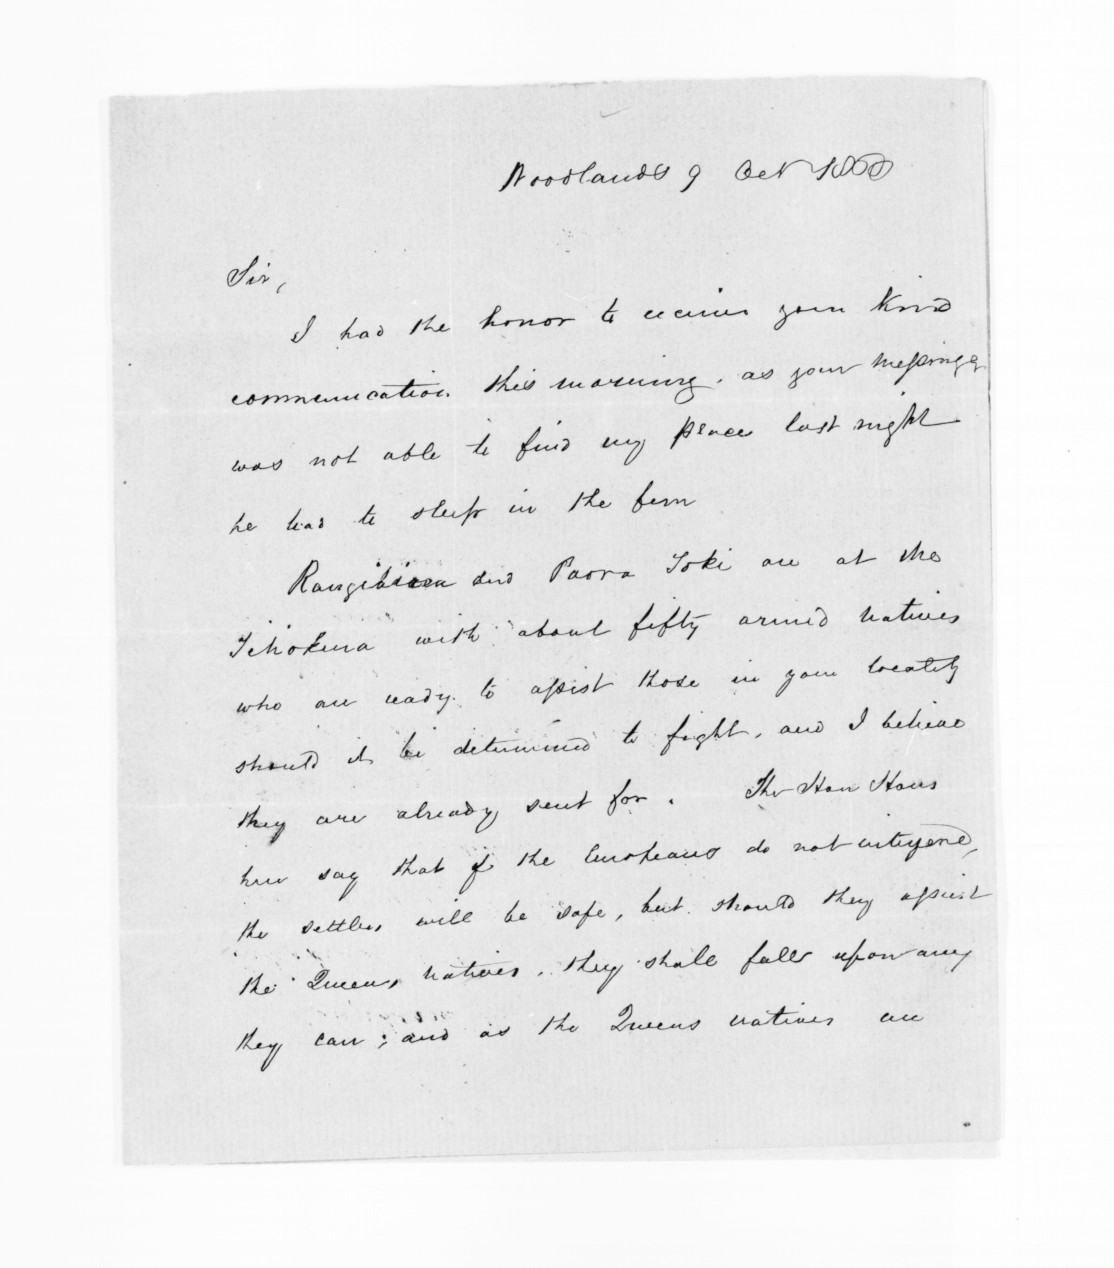 Woodlands 9 Oct
Sir,
I had the honor to receive your kind
communication this morning. as your messinger
was not able to find my place last night
he had to sleep in the fern
and Paora Toki are at the
with about fifty armed natives
who are ready to assist those in your locality
should it be determined to fight, and I believe
they are already sent for. The Hau Haus
here say that if the Europeans do not interfere,
the settlers will be safe, but should they assist
the Queens natives, they shall fall upon any
they can; and as the Queens natives are